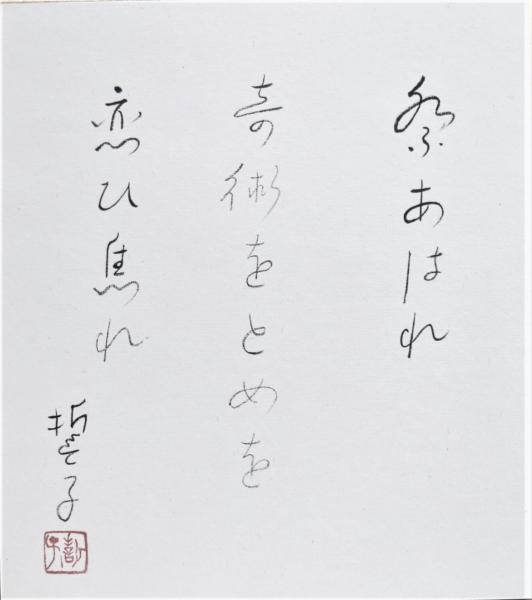 祭あはれ
奇術をとめを
恋ひ焦れ
誓子